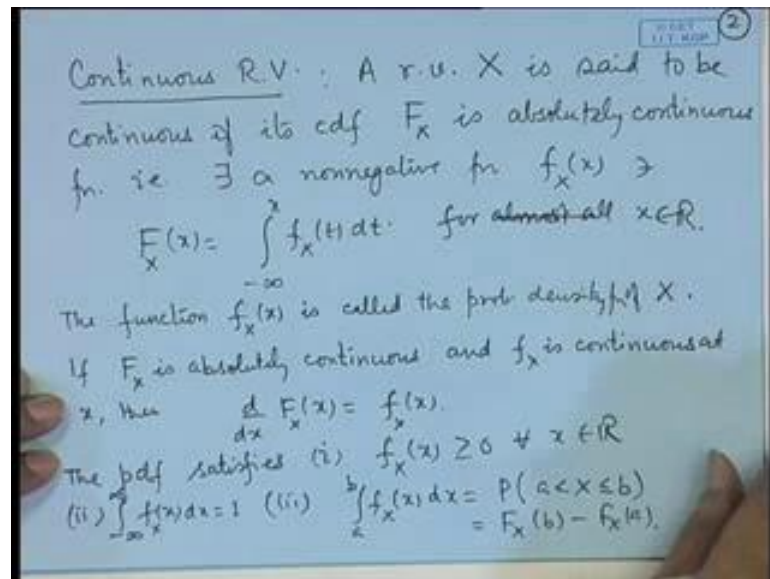 2
Continuous R.V. : A r.v. X is said to be
continuous if its cdf F_X is absolutely continuous
fn. ie ∃ a nonnegative fn f_X(x) ∋
F_X(x) = ∫_{-∞}^{x} f_X(t) dt. for ~~almost all~~ x ∈ ℝ.
The function f_X(x) is called the prob density fn of X.
If F_X is absolutely continuous and f_X is continuous at
x, then d/dx F_X(x) = f_X(x).
The pdf satisfies (i) f_X(x) ≥ 0 ∀ x ∈ ℝ
(ii) ∫_{-∞}^{∞} f_X(x) dx = 1 (iii) ∫_{a}^{b} f_X(x) dx = P(a < X ≤ b)
= F_X(b) - F_X(a).